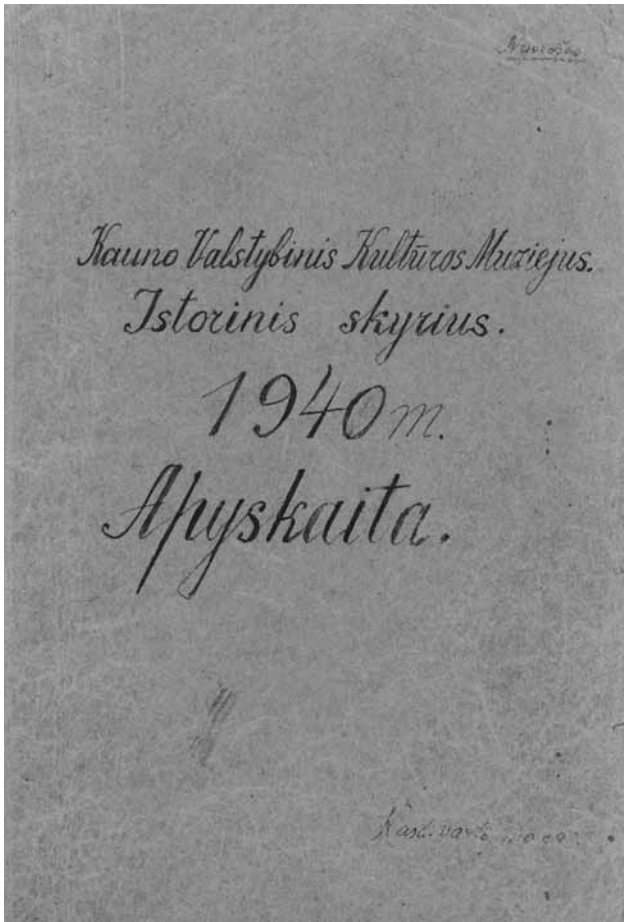 Kauno Valstybinis Kultūros Muziejus.
Istorinis skyrius.
1940 m.
Apyskaita.